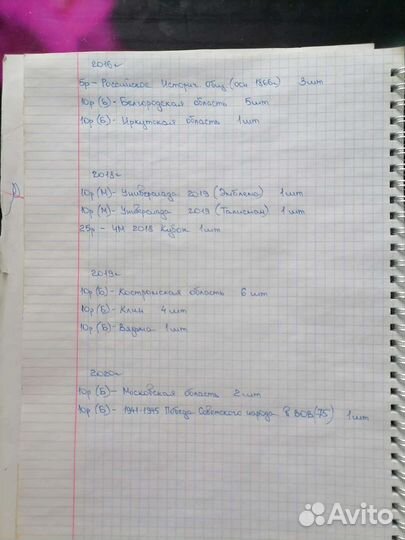 2016г
5р - Российское Историч. Общ (осн 1866г) 3шт
10р (Б) - Белгородская область 5шт
10р (Б) - Иркутская область 1шт
2018г
10р (М) - Универсиада 2019 (Эмблема) 1шт
10р (М) - Универсиада 2019 (Талисман) 1шт
25р - ЧМ 2018 Кубок 1шт
2019г
10р (Б) - Костромская область 6шт
10р (Б) - Клин 4шт
10р (Б) - Вязьма 1шт
2020г
10р (Б) - Московская область 2шт
10р (Б) - 1941-1945 Победа Советского народа в ВОВ (75) 1шт
Avito